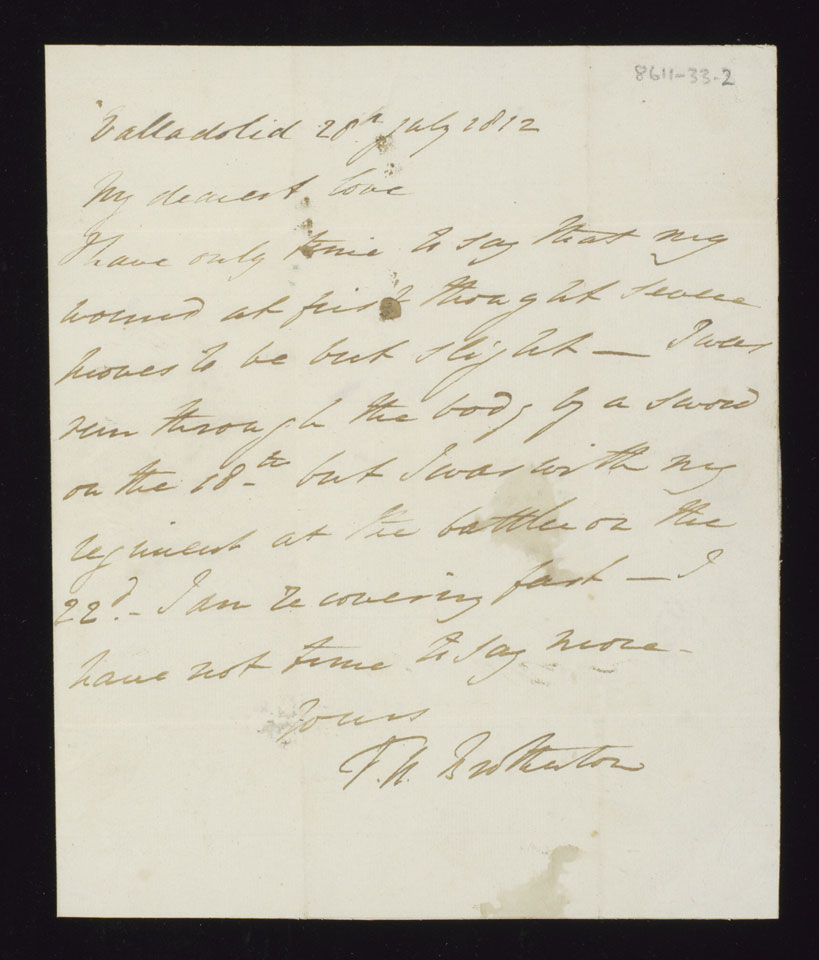 8611-33-2
Valladolid 28th July 1812
My dearest love
I have only time to say that my
wound at first thought severe
proves to be but slight — I was
run through the body by a sword
on the 18th but I was with my
regiment at the battle on the
22d. - I am recovering fast — I
have not time to say more -
Yours
T. W. Brotherton